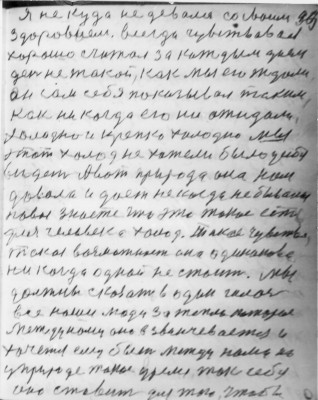 Я не куда не девал со своим
здоровьем, всегда чувствовал
хорошо считал за каждым днем
ден не такой, как мы его ждали,
он сам себя показывал таким,
как никогда его ни ожидали,
Холодно и крепко холодно мы
этот холод не хотели было
видет А вот природа она нам
давала и дает не когда небывалы
знаете что это такое есть
для человека холод. такое чувство,
такая возможност она одинакова
ни когда одной не стоит. мы
должны сказать в один голос
все наши люди за тепло которое
между нами оно заканчевается и
хочется ему быт между нами но
у природе такое время так себя
оно ставит для того, чтобы